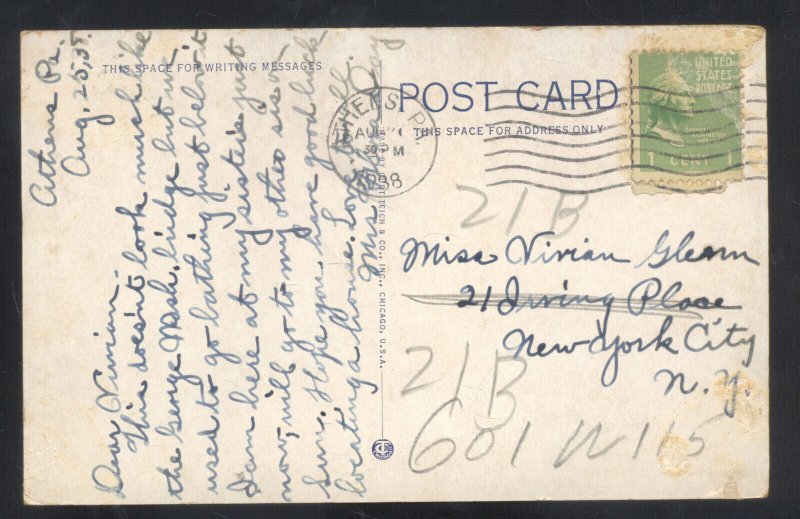 THIS SPACE FOR WRITING MESSAGES
Athens Pa.
Aug, 25,
Dear Vivian.
This doesn't look much like
the George Wash. bridge but we
used to go bathing just below it
I am here at my sister's just
now, will go to my other sis on
Sun. Hope you have good luck
locating a house. Love to all.
Mrs Day
POST CARD
THIS SPACE FOR ADDRESS ONLY
ATHENS, PA.
AUG
PM
UNITED
STATES
POSTAGE
1 CENT 1
C. & CO., INC., CHICAGO, U.S.A.
21B
Miss Vivian Glenn
21 Irving Place
New York City
N.Y.
21B
601 W 115